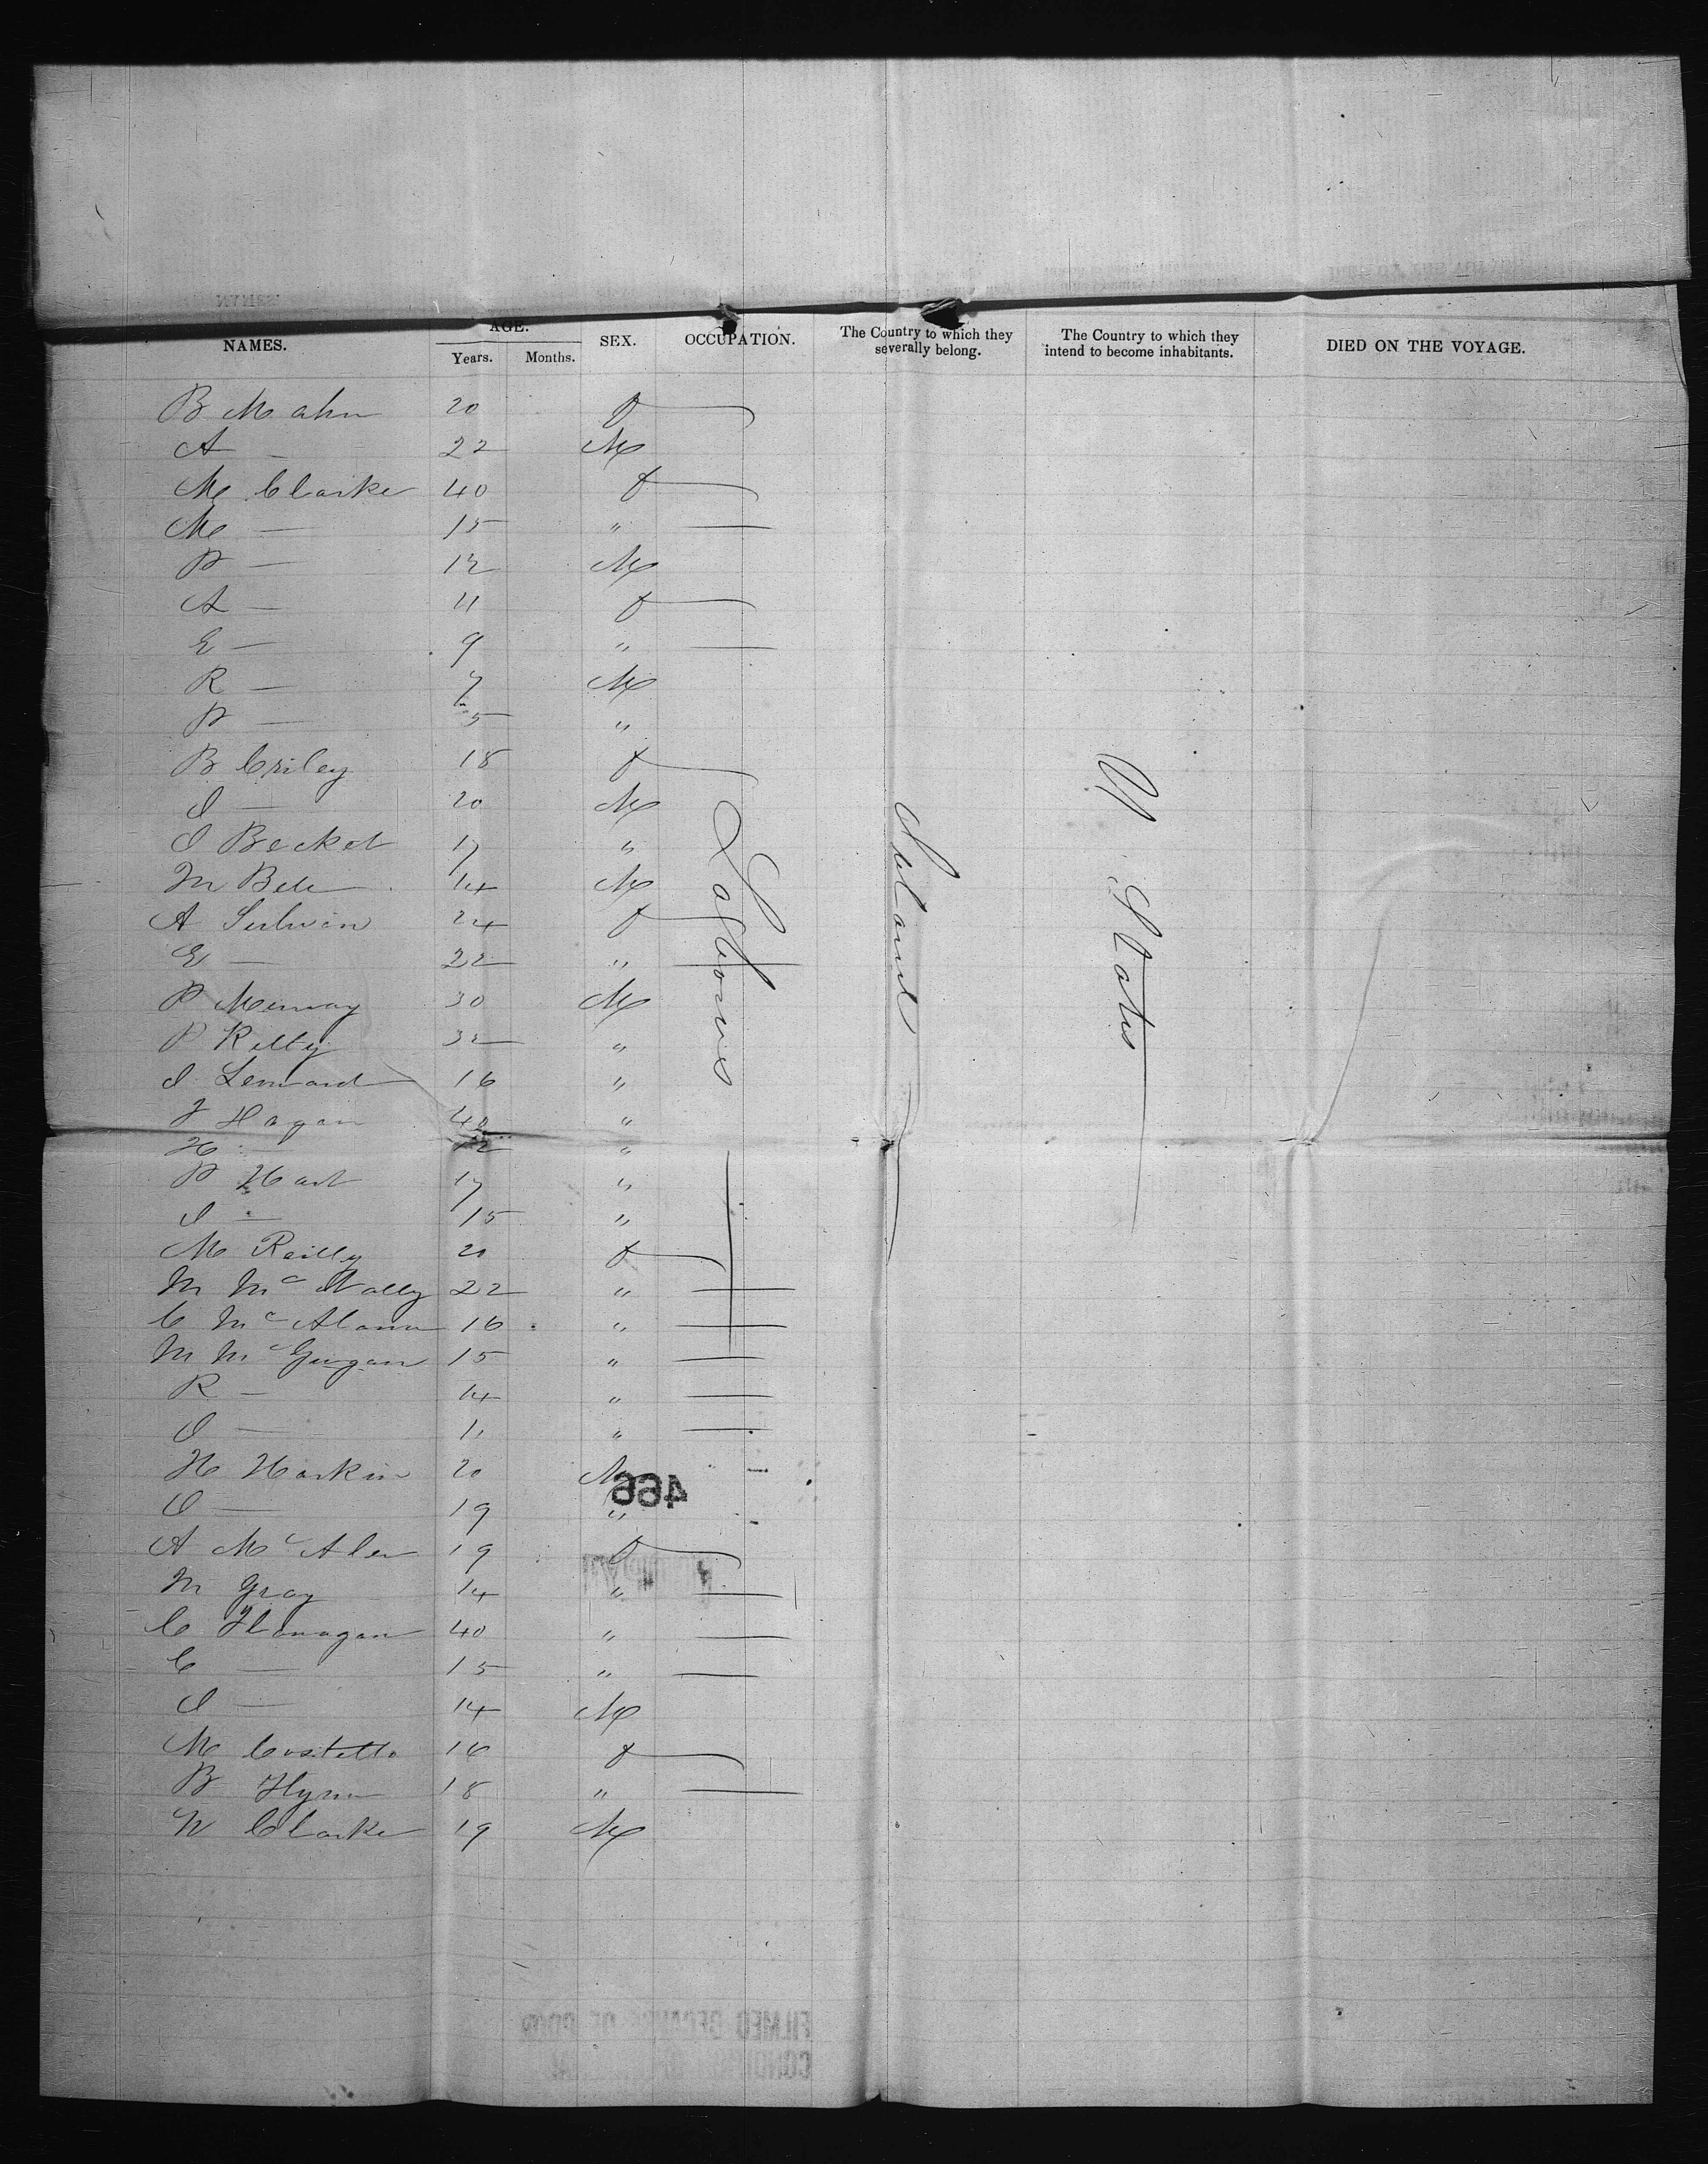 NAMES. AGE. SEX. OCCUPATION. The Country to which they severally belong. The Country to which they intend to become inhabitants. DIED ON THE VOYAGE.
Years. Months.
B Mahn 20 f
A — 22 M
M Clarke 40 f
M — 15 " —
P — 12 M
A — 11 f
E — 9 " —
R — 7 M
P — 5 "
B Criley 18 f
J — 20 M
J Becket 17 "
M Bele 14 M
A Sulivan 24 f
E — 22 " —
P Murray 30 M
P Kelly 32 "
J Lennard 16 "
J Hagan 40 "
H — 12 "
P Hart 17 "
J — 15 "
M Reilly 20 f
M Mc Nally 22 " —
C Mc Alann 16 " —
M Mc Guigan 15 " —
R — 14 " —
J — 11 " —
H Harkin 20 M
J — 19 "
A Mc Aler 19 f
M Gray 14 " —
C Flanagan 40 " —
C — 15 " —
J — 14 M
M Costello 16 f
B Flynn 18 " —
W Clarke 19 M
Laborers
Ireland
U States
466
FILMED BECAUSE OF POOR